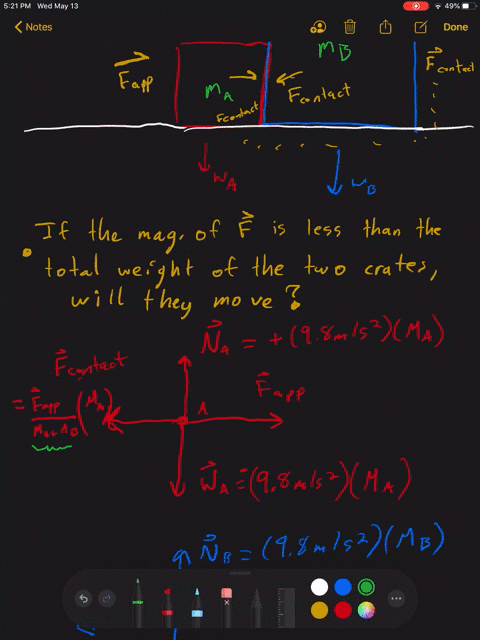 5:21 PM Wed May 13
49%
Notes
Done
M_B
F_app
F_contact
M_A
F_contact
F_contact
W_A
W_B
If the mag. of F is less than the
total weight of the two crates,
will they move?
N_A = +(9.8m/s²)(M_A)
F_contact
F_app
= F_app (M_A)
A
W_A = (9.8m/s²)(M_A)
N_B = (9.8m/s²)(M_B)